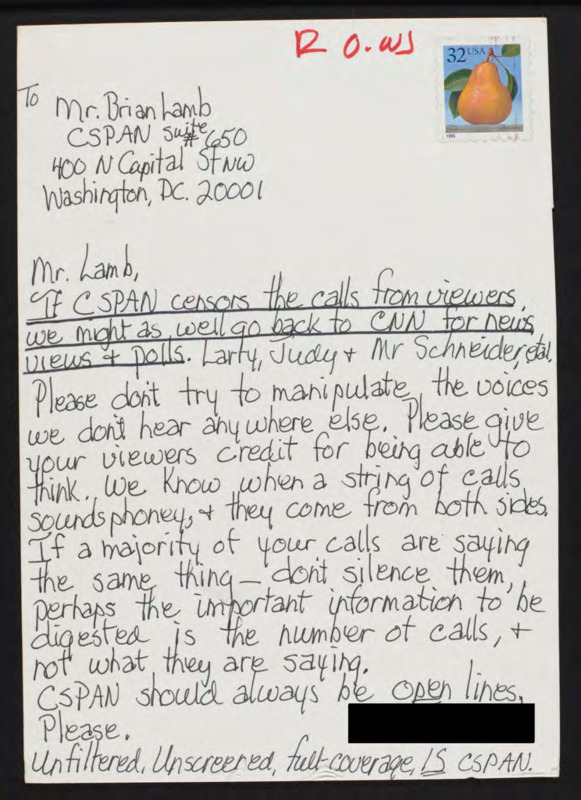 R O.WS
32 USA
To
Mr. Brian Lamb
CSPAN Suite # 650
400 N Capital St NW
Washington, DC. 20001
Mr. Lamb,
If CSPAN censors the calls from viewers,
we might as well go back to CNN for news
views & polls. Larry, Judy & Mr Schneider, etal.
Please don't try to manipulate the voices
we don't hear anywhere else. Please give
your viewers credit for being able to
think. We know when a string of calls
sounds phoney, & they come from both sides.
If a majority of your calls are saying
the same thing — don't silence them,
perhaps the important information to be
digested is the number of calls, &
not what they are saying.
CSPAN should always be open lines.
Please.
Unfiltered, Unscreened, full coverage, IS CSPAN.